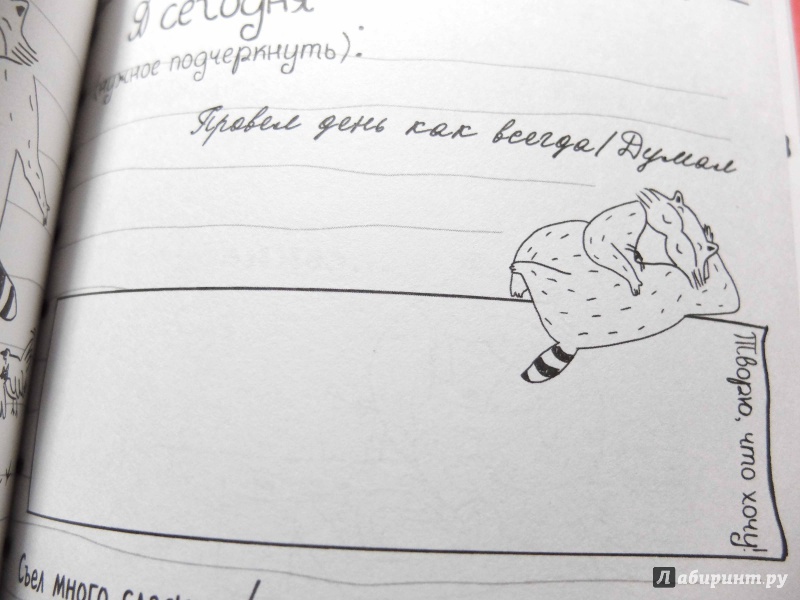 Я сегодня
(нужное подчеркнуть):
Провел день как всегда/Думал
Творю, что хочу!
Съел много
Лабиринт.ру